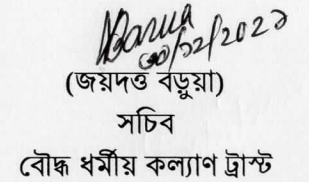 Barua
৩০/১২/২০২৩
(জয়দত্ত বড়ুয়া)
সচিব
বৌদ্ধ ধর্মীয় কল্যাণ ট্রাস্ট